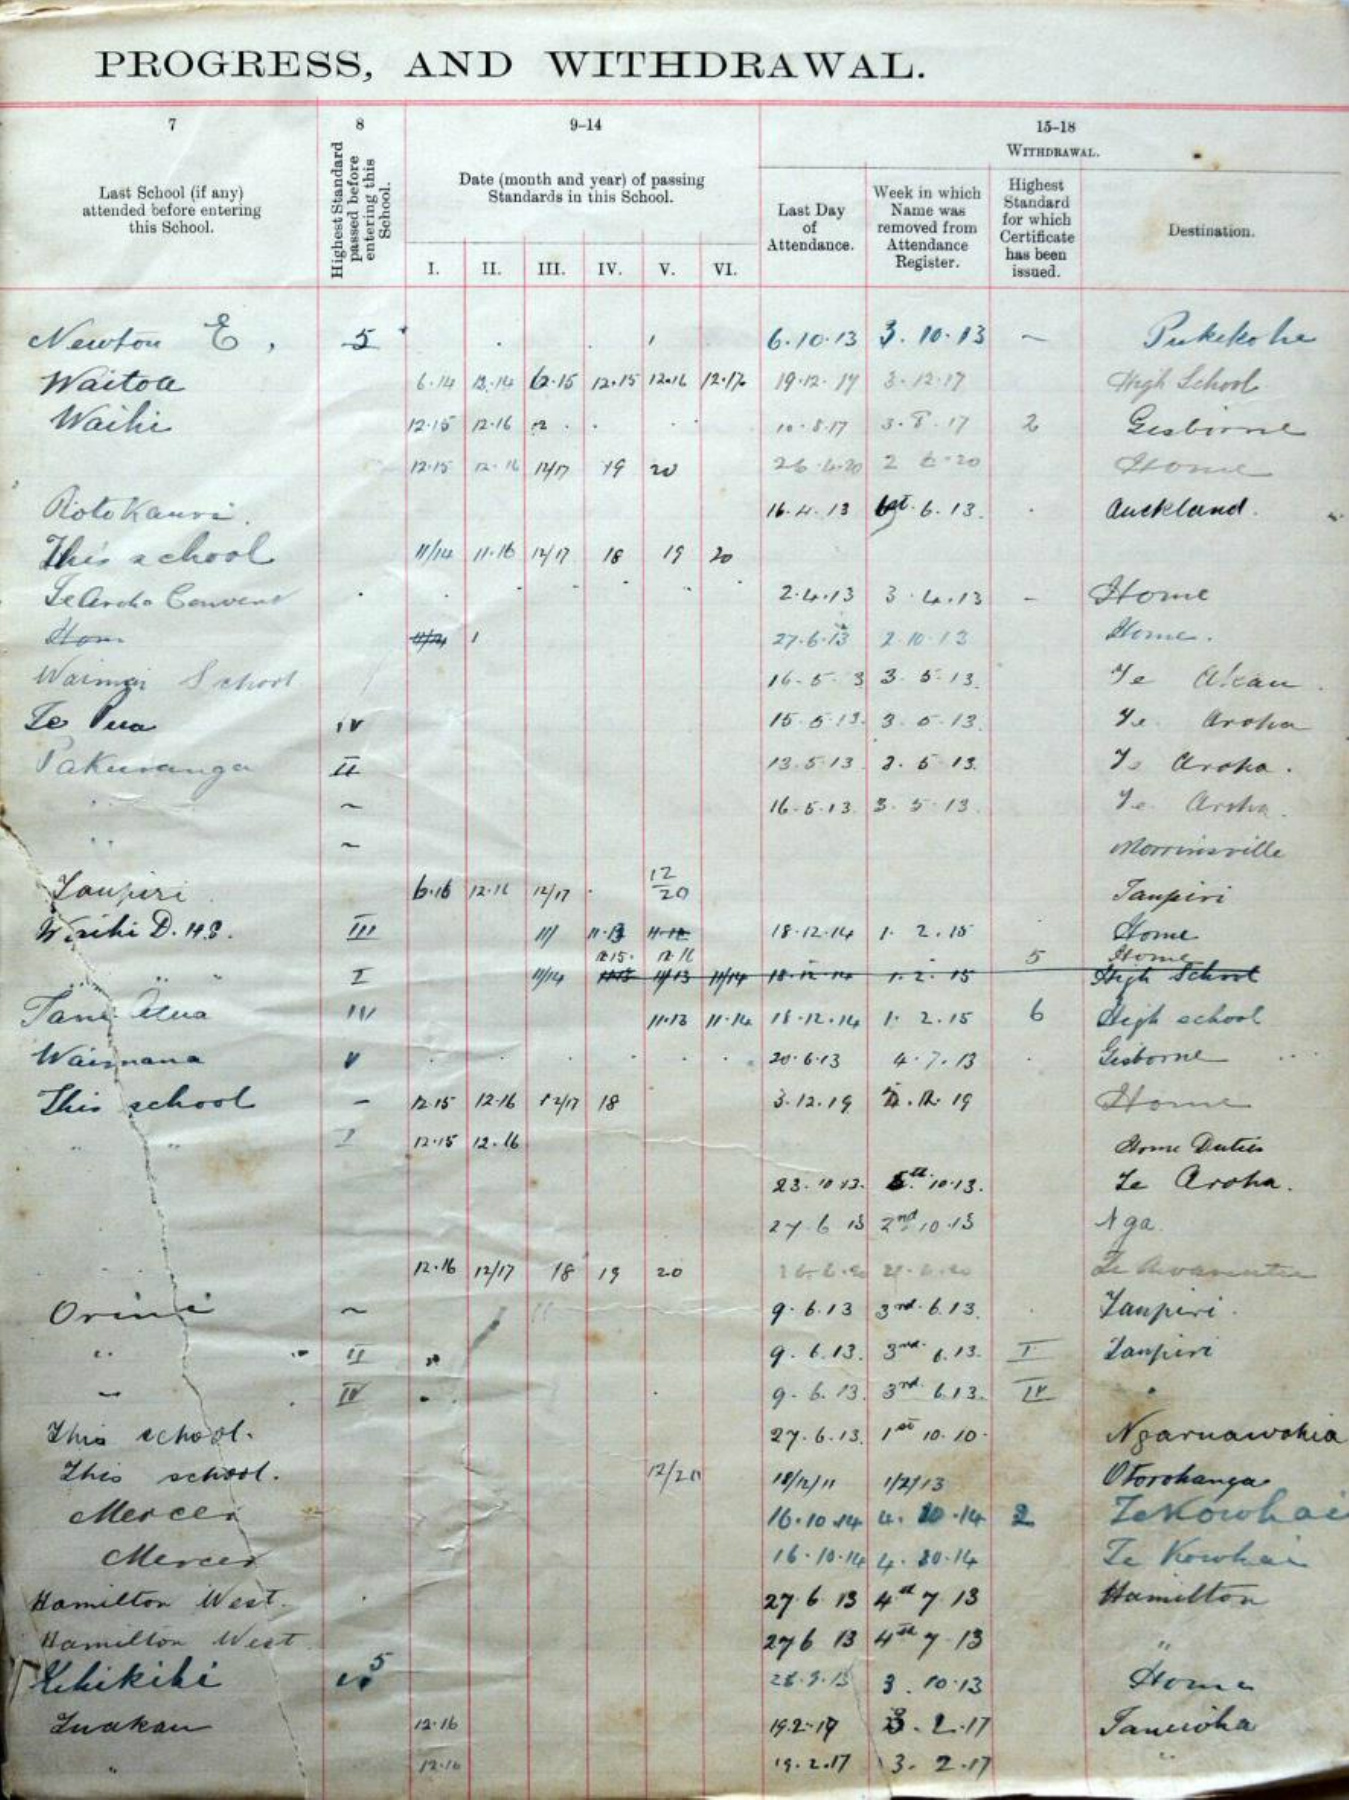 PROGRESS, AND WITHDRAWAL.
7 8 9–14 15–18
WITHDRAWAL.
Last School (if any) attended before entering this School.
Highest Standard passed before entering this School.
Date (month and year) of passing Standards in this School.
Last Day of Attendance.
Week in which Name was removed from Attendance Register.
Highest Standard for which Certificate has been issued.
Destination.
I. II. III. IV. V. VI.
Newton E, 5 6.10.13 3.10.13 – Pukekohe
Waitoa 6.14 12.14 12.15 12.16 12.17 3.12.17 High School
Waihi 12.15 12.16 10.8.17 3.8.17 2 Gisborne
12.15 12.16 12/17 19 20 Home
16.4.13 6.13. Auckland.
This school 11/14 11.16 12/17 18 19 20
Te Aroha Convent 2.4.13 3.4.13 – Home
27.6.13 2.10.13 Home.
School 3.5.13. Te Akau.
Te Pua IV 15.5.13. 3.5.13. Te Aroha
Pakuranga II 13.5.13 3.5.13. Te Aroha.
~ 16.5.13. 3.5.13. Te Aroha.
~ Morrinsville
Taupiri 6.16 12.16 12/17 12/20 Taupiri
Waihi D.H.S. III 11/ 11.13 18.12.14 1.2.15 Home
12.15. 12.16 5 Home
" " I 11/14 11/13 11/14 18.12.14 1.2.15 High School
IV 11.13 11.14 18.12.14 1.2.15 6 High school
Waimana V 20.6.13 4.7.13 Gisborne
This school – 12.15 12.16 12/17 18 3.12.19 Home
" " I 12.15 12.16 Home Duties
23.10.13. 5th 10.13. Te Aroha.
27.6.13 2nd 10.13 Nga
12.16 12/17 18 19 20
Orini ~ 9.6.13 3rd.6.13. Taupiri.
" II 9.6.13. 3rd. 6.13. I Taupiri
" IV 9.6.13. 3rd 6.13. IV "
This school. 27.6.13. 1st 10.10. Ngaruawahia
This school. 12/20 18/12/11 1/2/13 Otorohanga
Mercer 16.10.14 4.10.14 2 Te Kowhai
Mercer 16.10.14 4.10.14 Te Kowhai
Hamilton West. 27.6.13 4th 7.13 Hamilton
Hamilton West 27 6 13 4th 7.13 "
Kihikihi 5 3.10.13 Home
Tuakau 12.16 3.2.17
" 12.16 19.2.17 3.2.17 "